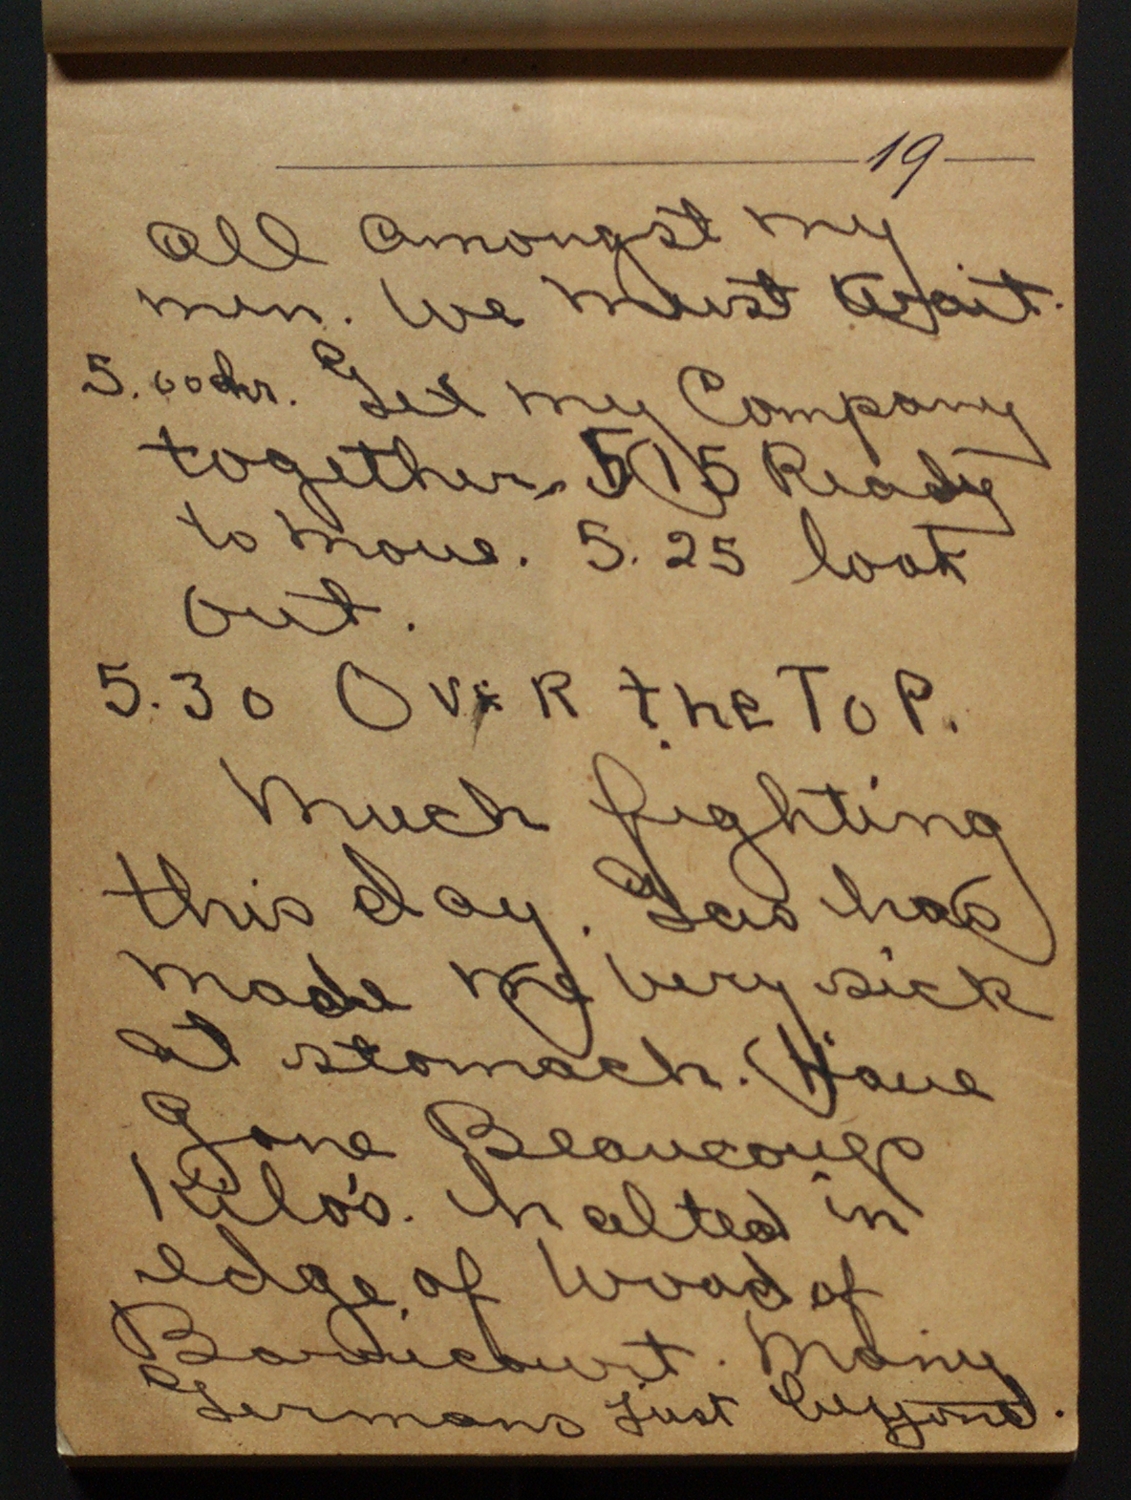 19
All amongst my
men. We must wait.
5.00hr. Get my Company
together. 5 15 Ready
to move. 5.25 look
out.
5.30 OVER the TOP.
Much fighting
this day. Gas has
made me very sick
at stomach. Have
Gone Beaucoup
Kilo's. halted in
edge of Wood of
Barricourt. Many
Germans just beyond.